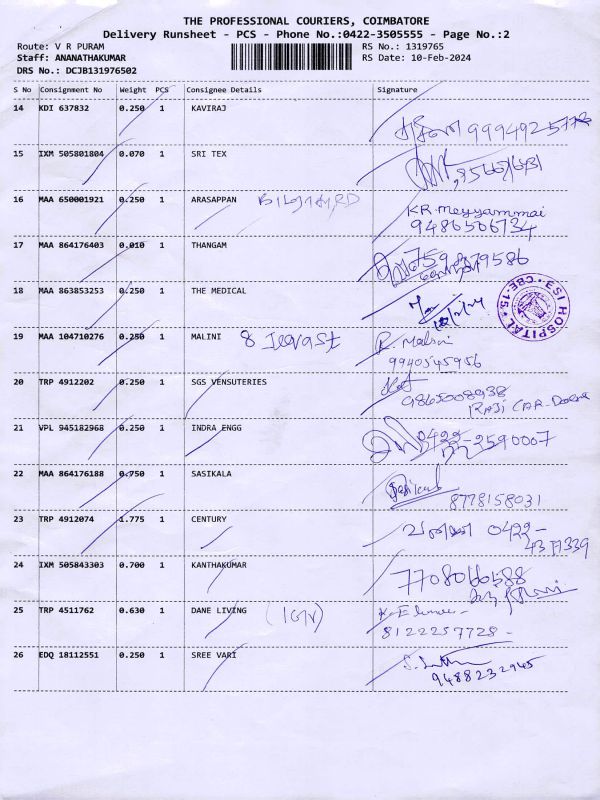 THE PROFESSIONAL COURIERS, COIMBATORE
Delivery Runsheet - PCS - Phone No.:0422-3505555 - Page No.:2
Route: V R PURAM RS No.: 1319765
Staff: ANANATHAKUMAR RS Date: 10-Feb-2024
DRS No.: DCJB131976502
S No Consignment No Weight PCS Consignee Details Signature
14 KDI 637832 0.250 1 KAVIRAJ
15 IXM 505801804 0.070 1 SRI TEX
16 MAA 650001921 0.250 1 ARASAPPAN KR. Meyyammai
9486506734
17 MAA 864176403 0.010 1 THANGAM
18 MAA 863853253 0.250 1 THE MEDICAL
ESI HOSPITAL CBE-15
19 MAA 104710276 0.250 1 MALINI R. Malini
9940545956
20 TRP 4912202 0.250 1 SGS VENSUTERIES
9865008938
21 VPL 945182968 0.250 1 INDRA ENGG 0422-2590007
22 MAA 864176188 0.750 1 SASIKALA
8778158031
23 TRP 4912074 1.775 1 CENTURY 0422-
4377339
24 IXM 505843303 0.700 1 KANTHAKUMAR
25 TRP 4511762 0.630 1 DANE LIVING
8122257728
26 EDQ 18112551 0.250 1 SREE VARI
9488232945